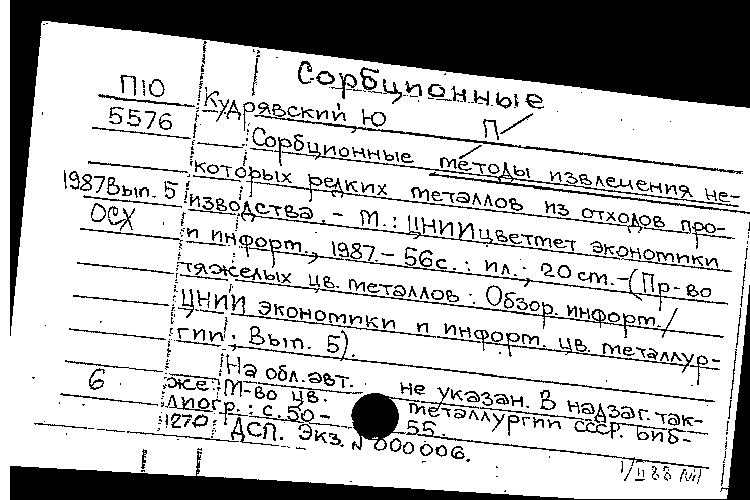 Сорбционные
П10
5576
Кудрявский, Ю
П
Сорбционные методы извлечения не-
которых редких металлов из отходов про-
1987 Вып. 5
изводства. - М.: ЦНИИцветмет экономики
ОСХ
и информ., 1987 - 56с.: ил.; 20 см. - (Пр-во
тяжелых цв. металлов: Обзор. информ. /
ЦНИИ экономики и информ. цв. металлур-
гии; Вып. 5).
На обл. авт. не указан. В надзаг. так-
6
же: М-во цв. металлургии СССР. Биб-
лиогр.: с. 50 - 55.
1270 ДСП. Экз. № 000006.